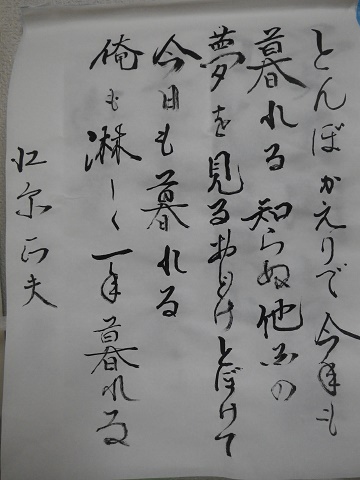 とんぼかえりで今年も
暮れる知らぬ他国の
夢を見るおどけとぼけて
今日も暮れる
俺も淋しく一年暮れる
正夫